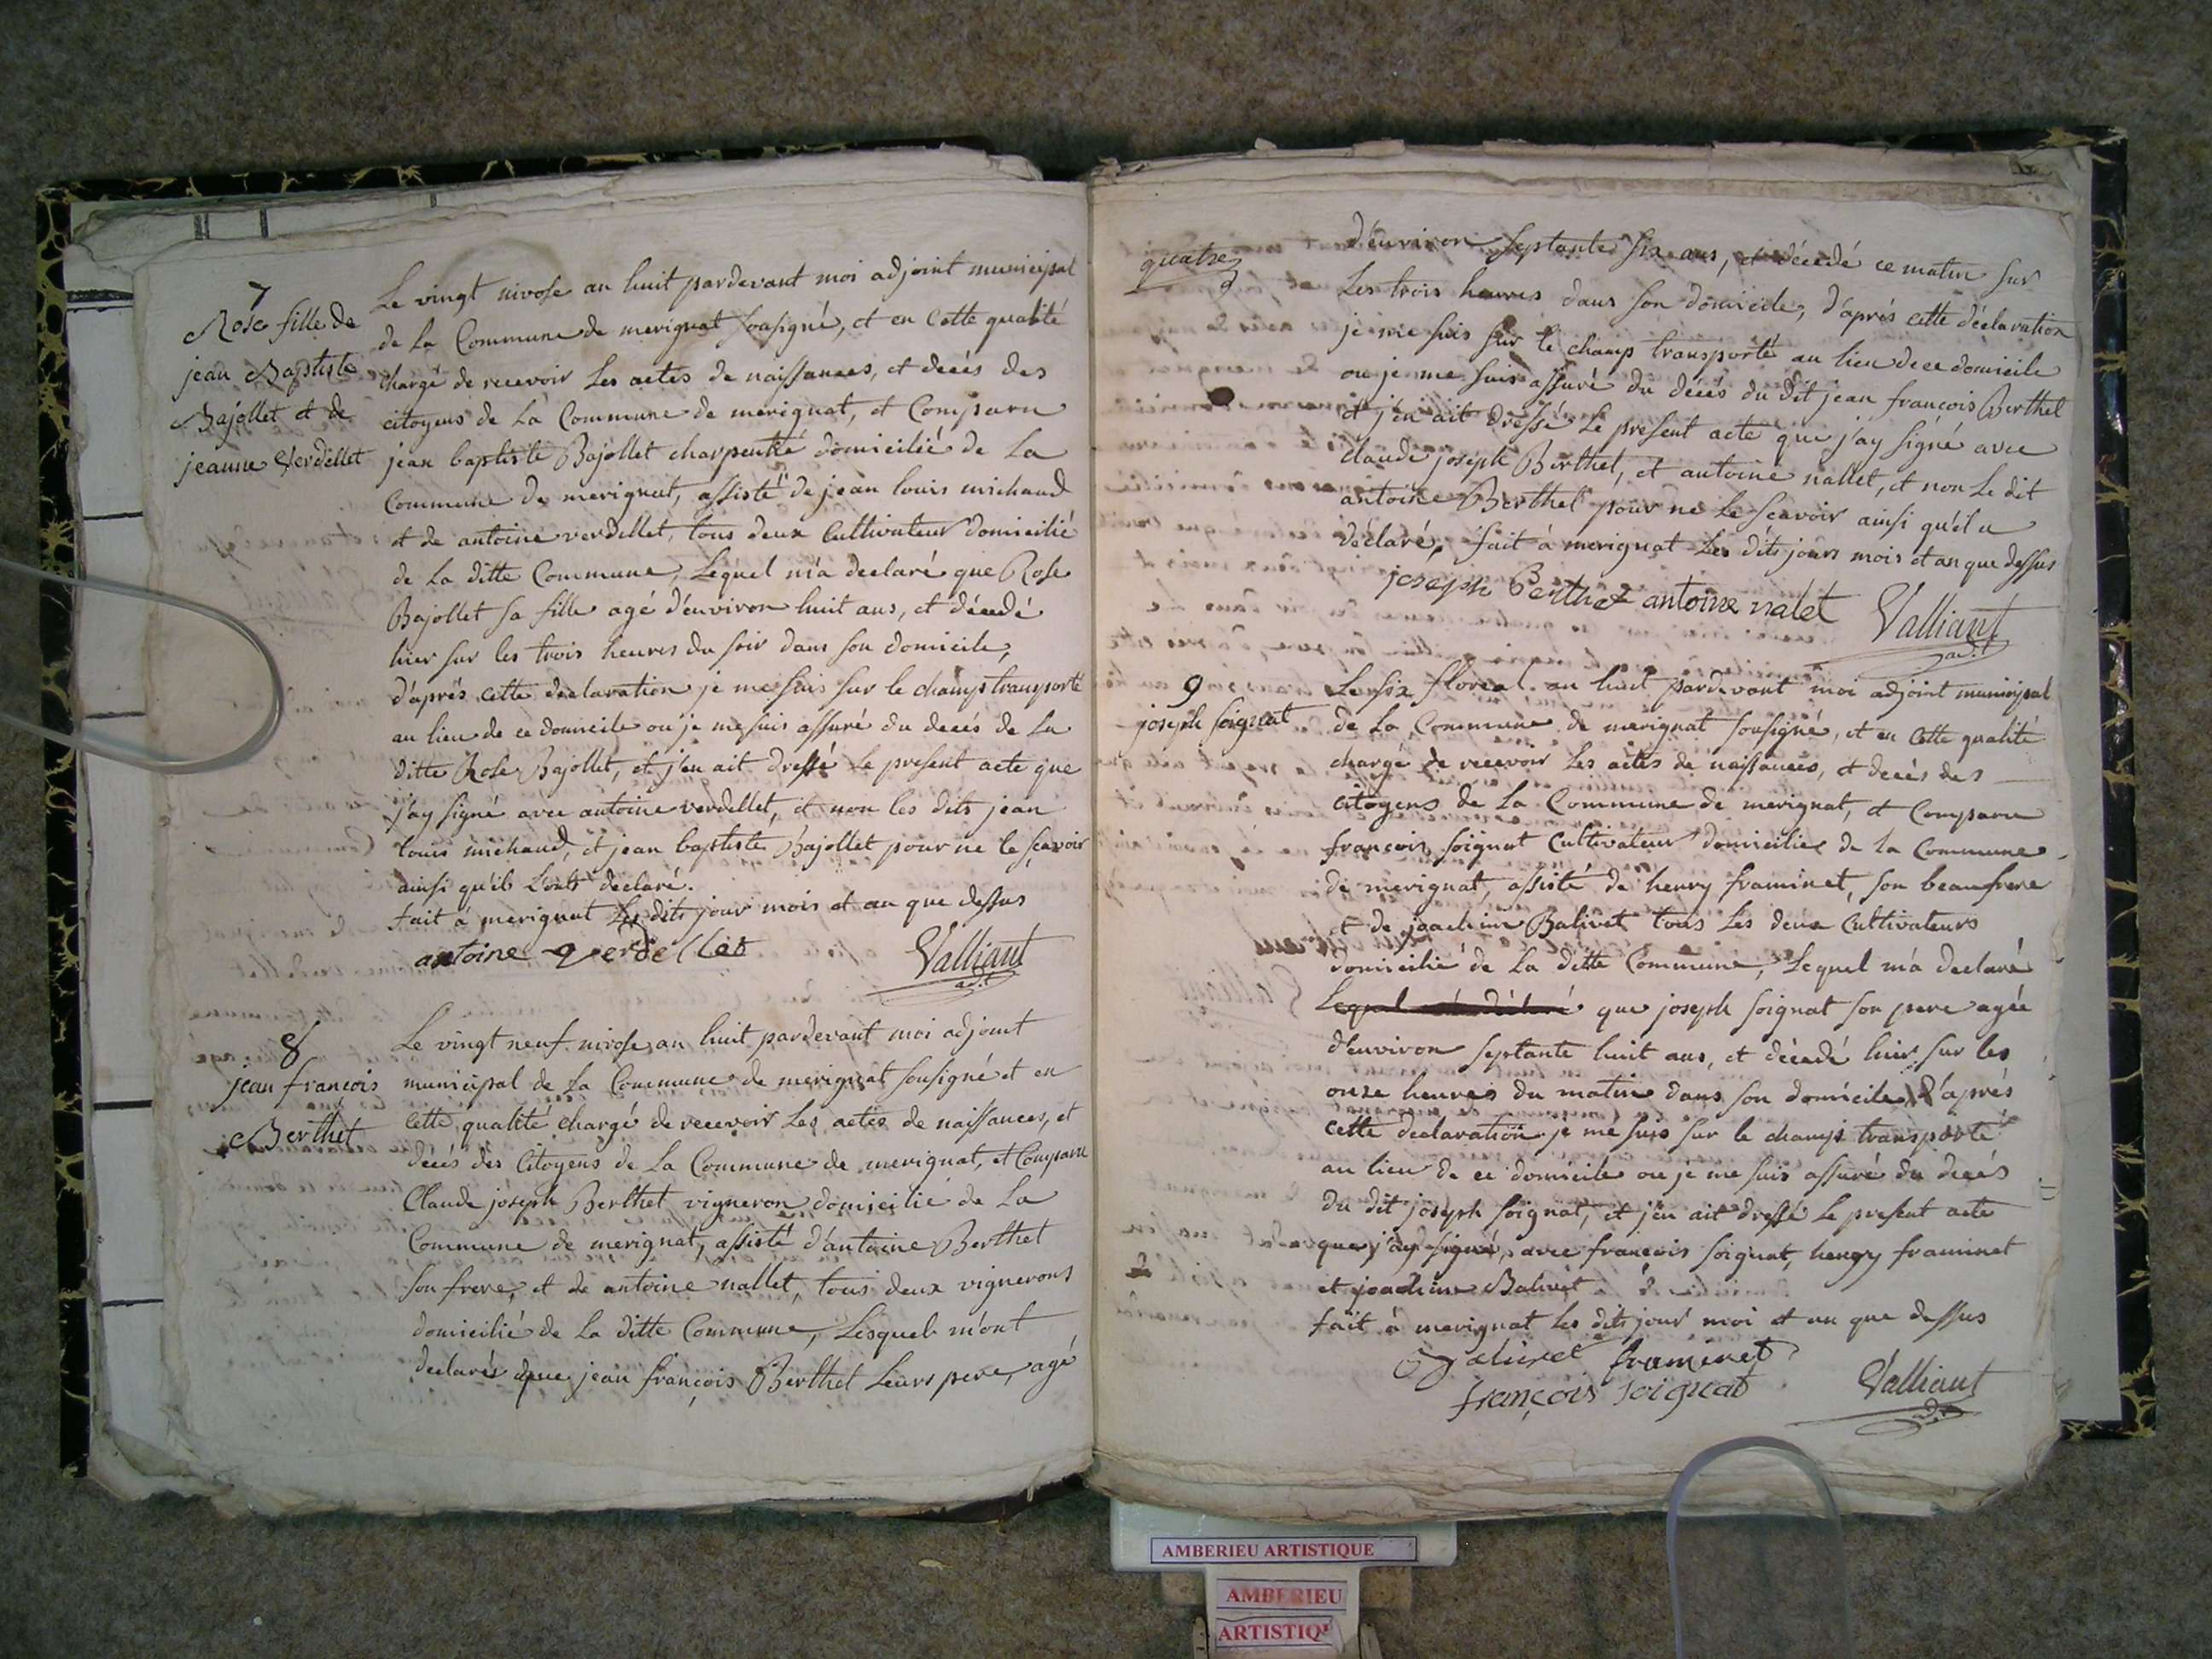 7
Rose fille de
jean Baptiste
Bajollet et de
jeanne Verdellet
Le vingt nivose an huit pardevant moi adjoint municipal
de La Commune de merignat sousigné, et en Cette qualité
chargé de recevoir Les actes de naissances, et decès des
citoyens de La Commune de merignat, et Comparu
jean baptiste Bajollet charpentié domicilié de La
Commune de merignat, assisté de jean louis michaud
et de antoine verdellet, tous deux Cultivateur domicilié
de La ditte Commune, Lequel m'a declaré que Rose
Bajollet sa fille agé d'environ huit ans, et décedé
hier sur les trois heures du soir dans son domicile,
d'après cette declaration je me suis sur le champs transporté
au lieu de ce domicile ou je me suis assuré du decès de La
ditte Rose Bajollet, et j'en ait dressé Le present acte que
j'ay signé avec antoine verdellet, et non les dits jean
louis michaud, et jean baptiste Bajollet pour ne le sçavoir
ainsi qu'ils L'ont declaré.
fait à merignat Les dits jour mois et an que dessus
antoine verdellet
Valliant
adj.t
8
jean françois
Berthet
Le vingt neuf nivose an huit pardevant moi adjoint
municipal de La Commune de merignat sousigné et en
Cette qualité chargé de recevoir Les actes de naissances, et
décès des Citoyens de La Commune de merignat, et Comparu
Claude joseph Berthet vigneron domicilié de La
Commune de merignat, assisté d'antoine Berthet
son frere, et de antoine nallet, tous deux vignerons
domicilié de La ditte Commune, Lesquel m'ont
declarés que jean françois Berthet Leurs pere, agé
quatre
d'environ septante six ans, et décedé ce matin sur
Les trois heures dans son domicile, d'après cette déclaration
je me suis sur le champs transporté au lieu de ce domicile
ou je me suis assuré du décès du dit jean françois Berthet
et j'en ait dressé Le present acte que j'ay signé avec
claude joseph Berthet, et antoine nallet, et non Le dit
antoine Berthet pour ne Le sçavoir ainsi qu'il a
déclaré, fait à merignat Les dits jours mois et an que dessus
joseph Berthet antoine nalet Valliant
adj.t
9
joseph soignat
Le six floreal an huit pardevant moi adjoint municipal
de La Commune de merignat sousigné, et en Cette qualité
chargé de recevoir Les actes de naissances, et decès des
citoyens de La Commune de merignat, et Comparu
françois soignat Cultivateur domicilié de La Commune
de merignat, assisté de henry framinet, son beaufrere
et de joachim Balivet tous Les deux Cultivateurs
domicilié de La ditte Commune, Lequel m'a declaré
Lequel m'a déclaré que joseph soignat son pere agée
d'environ septante huit ans, et décedé hier sur les
onze heures du matin dans son domicile, d'après
cette declaration je me suis sur le champs transporté
au lieu de ce domicile ou je me suis assuré du decès
du dit joseph soignat, et j'en ait dressé Le present acte
que j'ay signé, avec françois soignat, henry framinet
et joachim Balivet
fait à merignat les dits jour moi et an que dessus
framinet
françois soignat
Valliant
adj.t
AMBERIEU ARTISTIQUE
AMBERIEU
ARTISTIQU